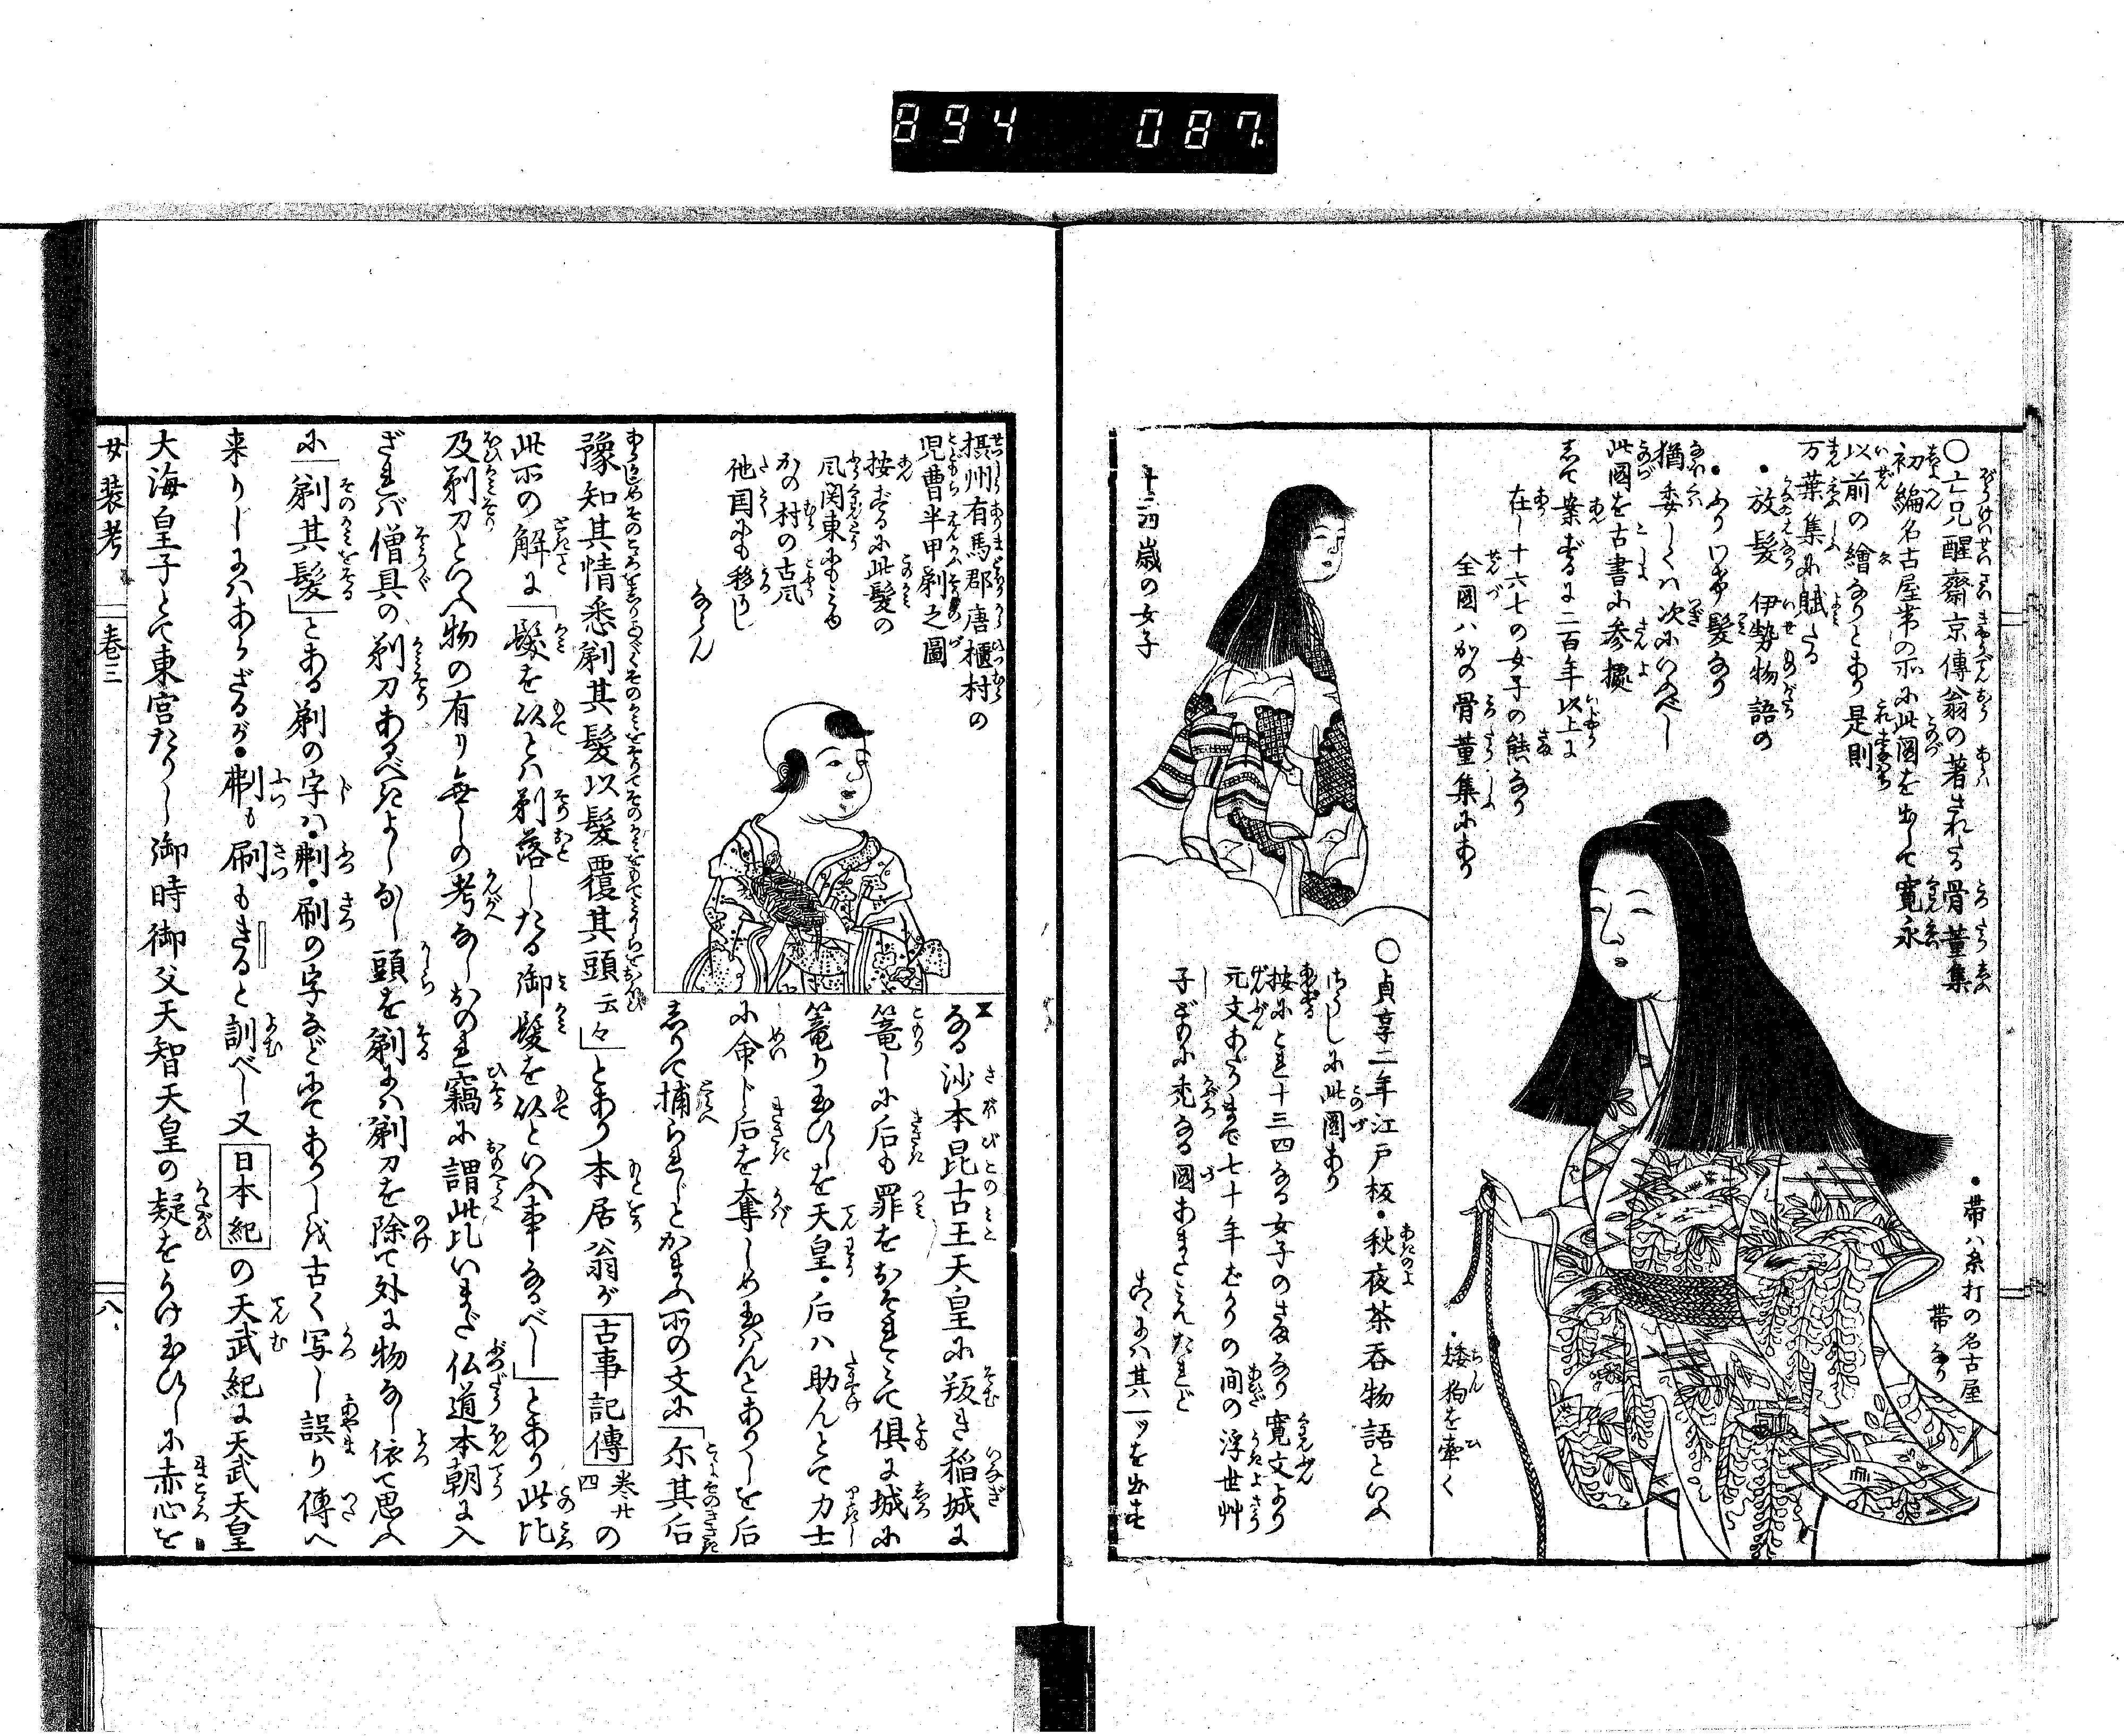 894 087.
〇亡兄醒齋京傳翁の著されたる骨董集
初編名古屋帯の所に此圖を出して寛永
以前の繪なりとあり是則
万葉集に賦たる
・放髪 伊勢物語の
・ふりわけ髪なり
猶委しくハ次にいふべし
此圖を古書に参攈
して案ずるに二百年以上に
在し十六七の女子の態なり
全圖ハかの骨董集にあり
・帯ハ糸打の名古屋
帯なり
・矮狗を牽く
十三四歳の女子
〇貞享二年江戸板・秋夜茶呑物語といふ
さうしに此圖あり
按にこれ十三四なる女子のさまなり寛文より
元文あたりまで七十年ばかりの間の浮世艸
子ぞめに禿なる圖あまたみえたれど
こゝにハ其一ッを出す
摂州有馬郡唐櫃村の
児曹半甲剃之圖
按ずるに此髪の
風関東にもみゆ
かの村の古風
他国にも移りし
ならん
なる沙本毘古王天皇に叛き稲城に
篭しに后も罪をおそれみて倶に城に
篭り玉ひしを天皇・后ハ助んとて力士
に命じ后を奪しめ玉はんとありしを后
しりて捕られじとかまふ所の文に「尓其后
豫知其情悉剃其髪以髪覆其頭云々」とあり本居翁が古事記傳巻廿四の
此所の解に「髪を以とハ剃落したる御髪を以といふ事なるべし」とあり此比
及剃刀といへ物の有り無しの考なしおのれ竊に謂此比いまだ仏道本朝に入
ざれバ僧具の剃刀あるべきよしなし頭を剃にハ剃刀を除て外に物なし依て思ふ
に「剃其髪」とある剃の字ハ・剕・刷の字などにてありしを古く写し誤り傳へ
来りしにハあらざるが・剕も刷もきると訓べし又日本紀の天武紀に天武天皇
大海皇子とて東宮たりし御時御父天智天皇の疑をうけ玉ひしに赤心を
女装考 巻三 八